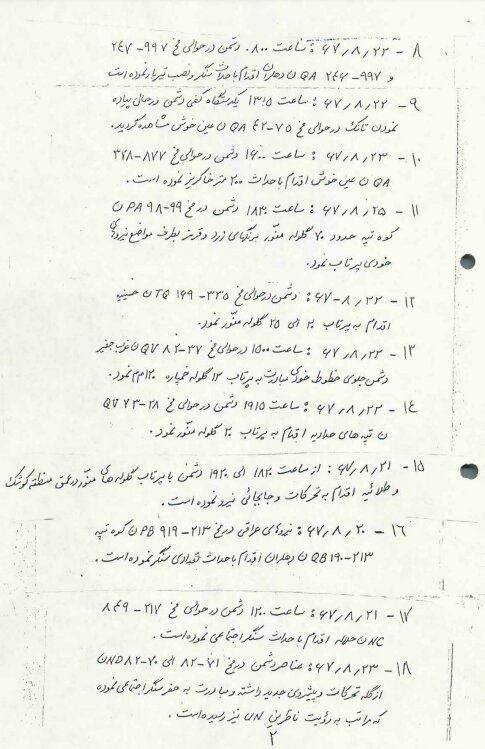 ۸ - ۶۷/۸/۲۲ : ساعت ۸۰۰ دشمن در حوالی مخ ۹۹۷-۲۴۷
و ۹۹۷-۲۴۶ QA ن دهلران اقدام باحداث سنگر و نصب تیربار نموده است
۹ - ۶۷/۸/۲۲ : ساعت ۱۳۱۵ یکدستگاه کفی دشمن در حال پیاده
نمودن تانک در حوالی مخ ۷۵-۴۲ QA ن عین خوش مشاهده گردید.
۱۰ - ۶۷/۸/۲۳ : ساعت ۱۶۰۰ دشمن در حوالی مخ ۸۷۷-۳۷۸
QA ن عین خوش اقدام باحداث ۲۰۰ متر خاکریز نموده است.
۱۱ - ۶۷/۸/۲۵ : ساعت ۱۸۳۰ دشمن در مخ ۹۹-۹۸ PA ن
کوه تپه حدود ۷۰ گلوله منور برنگهای زرد و قرمز بطرف مواضع نیروهای
خودی پرتاب نمود.
۱۲ - ۶۷-۸/۲۲ : دشمن در حوالی مخ ۳۳۵-۱۶۹ TQ ن حسینیه
اقدام به پرتاب ۲۰ الی ۲۵ گلوله منور نمود.
۱۳ - ۶۷/۸/۲۲ : ساعت ۱۵۰۰ در حوالی مخ ۳۷-۸۲ QV ن غرب
دشمن جلوی خطوط خودی مبادرت به پرتاب ۱۲ گلوله خمپاره ۱۲۰ م م نمود.
۱۴ - ۶۷/۸/۲۲ : ساعت ۱۹۱۵ دشمن در حوالی مخ ۲۸-۷۳ QV
ن تپه های اقدام به پرتاب ۲۰ گلوله منور نمود.
۱۵ - ۶۷/۸/۲۱ : از ساعت ۱۸۳۰ الی ۱۹۳۰ دشمن با پرتاب گلوله های منور در عمق منطقه کوشک
و طلائیه اقدام به تحرکات و جابجائی نیرو نموده است.
۱۶ - ۶۷/۸/۲۰ : نیروهای عراقی در مخ ۲۱۳-۹۱۹ PB ن کوه تپه
۲۱۳-۱۹۰ QB ن دهلران اقدام باحداث تعدادی سنگر نموده است.
۱۷ - ۶۷/۸/۲۱ : ساعت ۱۲۰۰ دشمن در حوالی مخ ۲۱۷-۸۴۹
NC ن اقدام باحداث سنگر اجتماعی نموده است.
۱۸ - ۶۷/۸/۲۳ : عناصر دشمن در مخ ۷۱-۸۲ الی ۷۰-۸۲ ND ن
ازگله تحرکات و پیشروی جدید داشته و مبادرت به حفر سنگر اجتماعی نموده
که مراتب به رؤیت ناظرین UN نیز رسیده است.
۲